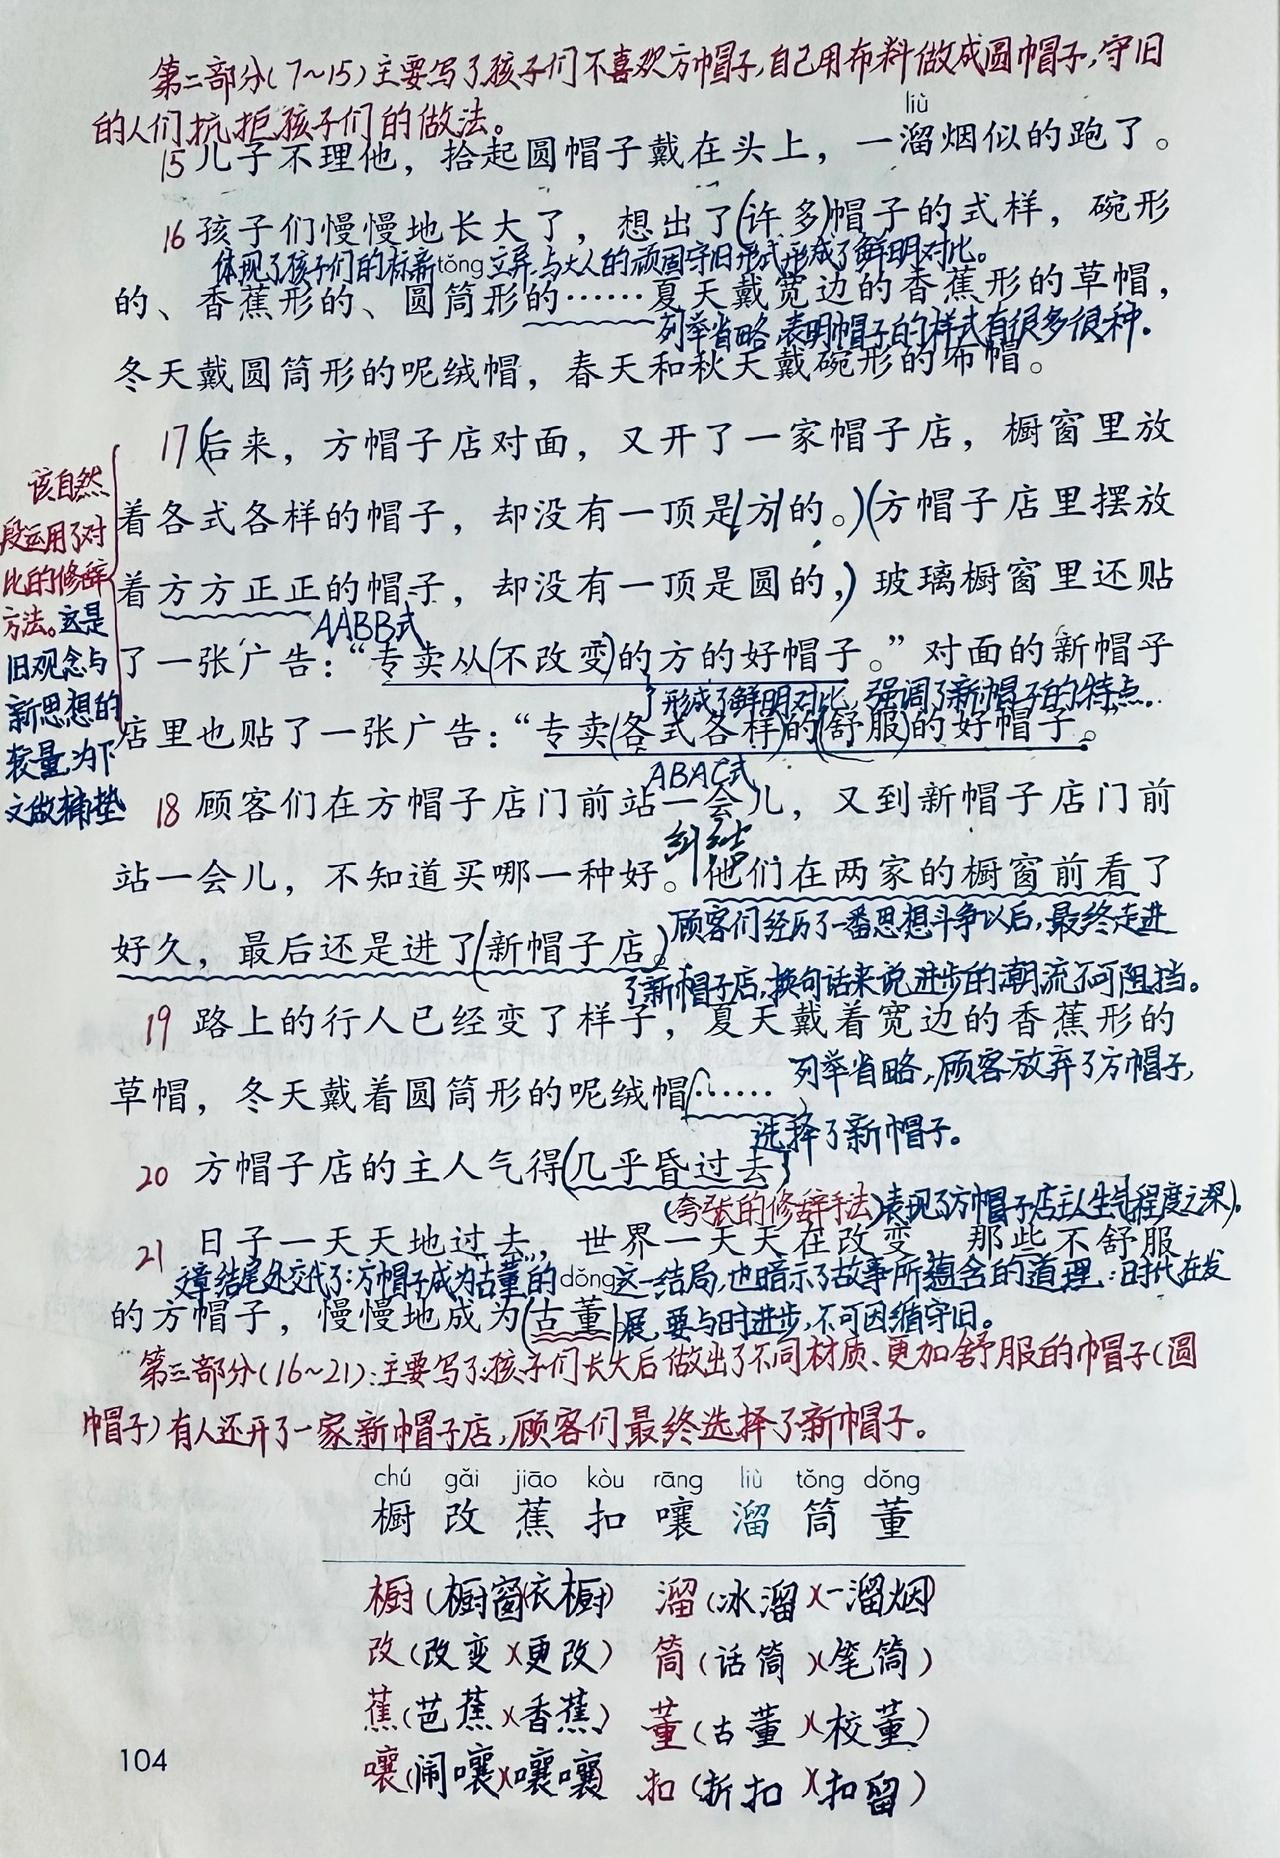 第二部分(7~15)主要写了孩子们不喜欢方帽子,自己用布料做成圆帽子,守旧
的人们抗拒孩子们的做法。
liù
15 儿子不理他，拾起圆帽子戴在头上，一溜烟似的跑了。
16 孩子们慢慢地长大了，想出了(许多)帽子的式样，碗形
体现了孩子们的标新立异,与大人的顽固守旧形式形成了鲜明对比。
tǒng
的、香蕉形的、圆筒形的……夏天戴宽边的香蕉形的草帽，
列举省略,表明帽子的样式有很多很种.
冬天戴圆筒形的呢绒帽，春天和秋天戴碗形的布帽。
17(后来，方帽子店对面，又开了一家帽子店，橱窗里放
着各式各样的帽子，却没有一顶是方的。)(方帽子店里摆放
着方方正正的帽子，却没有一顶是圆的,)玻璃橱窗里还贴
AABB式
了一张广告：“专卖从(不改变)的方的好帽子。”对面的新帽子
形成了鲜明对比,强调了新帽子的特点.
店里也贴了一张广告：“专卖(各式各样)的(舒服)的好帽子。”
ABAC式
该自然
段运用了对
比的修辞
方法。这是
旧观念与
新思想的
较量,为下
文做铺垫
18 顾客们在方帽子店门前站一会儿，又到新帽子店门前
纠结
站一会儿，不知道买哪一种好。他们在两家的橱窗前看了
顾客们经历了一番思想斗争以后,最终走进
好久，最后还是进了(新帽子店)。
了新帽子店,换句话来说进步的潮流不可阻挡。
19 路上的行人已经变了样子，夏天戴着宽边的香蕉形的
列举省略,顾客放弃了方帽子,
草帽，冬天戴着圆筒形的呢绒帽……
选择了新帽子。
20 方帽子店的主人气得(几乎昏过去)
(夸张的修辞手法)表现了方帽子店主人生气程度之深)。
21 日子一天天地过去，世界一天天在改变，那些不舒服
文章结尾处交代了:方帽子成为古董的这一结局,也暗示了故事所蕴含的道理:时代在发
dǒng
的方帽子，慢慢地成为(古董)
展,要与时进步,不可因循守旧。
第三部分(16~21):主要写了孩子们长大后做出了不同材质、更加舒服的帽子(圆
帽子)有人还开了一家新帽子店,顾客们最终选择了新帽子。
chú gǎi jiāo kòu rāng liù tǒng dǒng
橱 改 蕉 扣 嚷 溜 筒 董
橱(橱窗)(衣橱) 溜(冰溜)(一溜烟)
改(改变)(更改) 筒(话筒)(笔筒)
蕉(芭蕉)(香蕉) 董(古董)(校董)
嚷(闹嚷)(嚷嚷) 扣(折扣)(扣留)
104